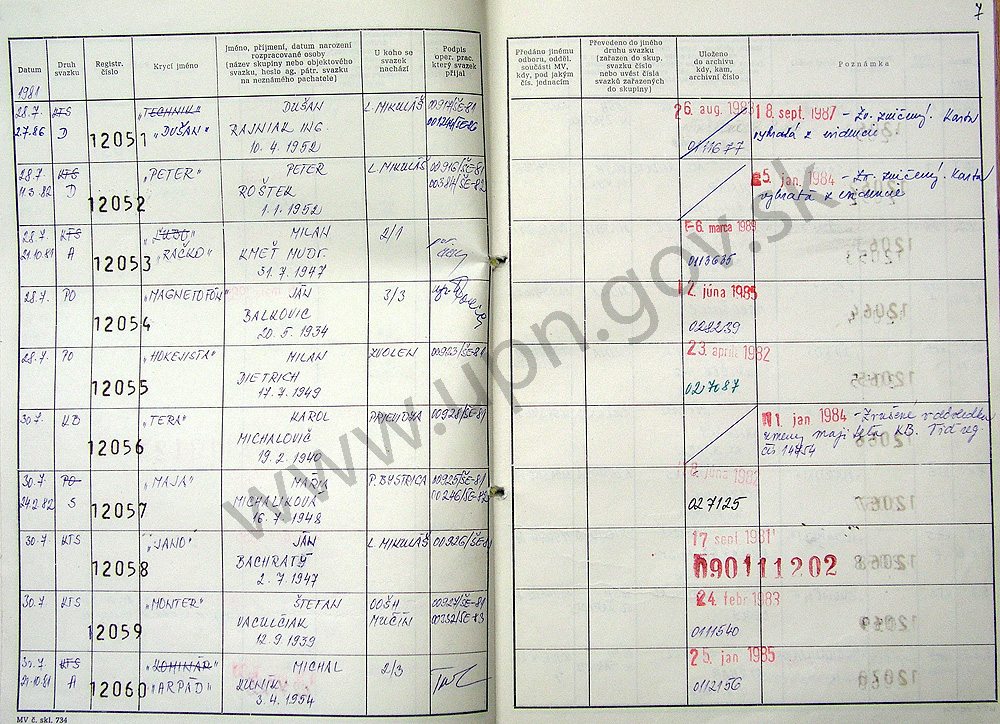 7
Datum
Druh svazku
Registr. číslo
Krycí jméno
Jméno, příjmení, datum narození
rozpracované osoby
(název skupiny nebo objektového
svazku, heslo ag. pátr. svazku
na neznámého pachatele)
U koho se
svazek
nachází
Podpis
oper. prac.
který svazek
přijal
Předáno jinému
odboru, odděl.
součásti MV,
kdy, pod jakým
čís. jednacím
Převedeno do jiného
druhu svazku
(zařazen do skup.
svazku číslo
nebo uvést čísla
svazků zařazených
do skupiny)
Uloženo
do archivu
kdy, kam,
archivní číslo
Poznámka
1981
28.7. KTS „TECHNIK" DUŠAN L. MIKULÁŠ 00914/ŠE-81 26. aug. 1983 18. sept. 1987 - Zv. zničený. Karta
2.7.86 D 12051 „DUŠAN" RAJNIAK ING. vybratá z evidencie
10. 4. 1952 0111677
28.7. KTS „PETER" PETER L. MIKULÁŠ 00916/ŠE-81 5. jan 1984 - Zv. zničený. Karta
11.3.82 D 12052 ROŠTEK 00384/ŠE-82 vybratá z evidencie
1. 1. 1952
28.7. KTS MILAN 2/1 -6. marca 1989
21.10.81 A 12053 „RAČKO" KMEŤ MUDR.
31. 7. 1947 0113635
28.7. PO „MAGNETOFÓN" JÁN 3/3 2. júna 1985
12054 BALKOVIC
20. 5. 1934 028239
28.7. PO „HOKEJISTA" MILAN ZVOLEN 00923/ŠE-81 23. apríl 1982
12055 DIETRICH
17. 7. 1949 027087
30.7. KB „TERA" KAROL PRIEVIDZA 00928/ŠE-81 11. jan 1984 - Zrušené
12056 MICHALOVIČ KB.
19. 2. 1940 čís 14754
30.7. PO „MAJA" MÁRIA P. BYSTRICA 00925/ŠE-81 júna 1982
24.2.82 S 12057 MICHALIKOVÁ 00246/ŠE-82
16. 7. 1948 027125
30.7. KTS „JANO" JÁN L. MIKULÁŠ 00926/ŠE-81 17 sept. 1981
12058 BACHRATÝ 090111202
2. 7. 1947
30.7. KTS „MONTER" ŠTEFAN OOŠH 00927/ŠE-81 24. febr 1983
12059 VACULČIAK MUČÍN
12. 9. 1939 0111540
30.7. KTS „KOMINÁR" MICHAL 2/3 25. jan 1985
21.10.81 A 12060 „ARPÁD" KUNÍK
3. 4. 1954 0112156
MV č. skl. 734
www.upn.gov.sk